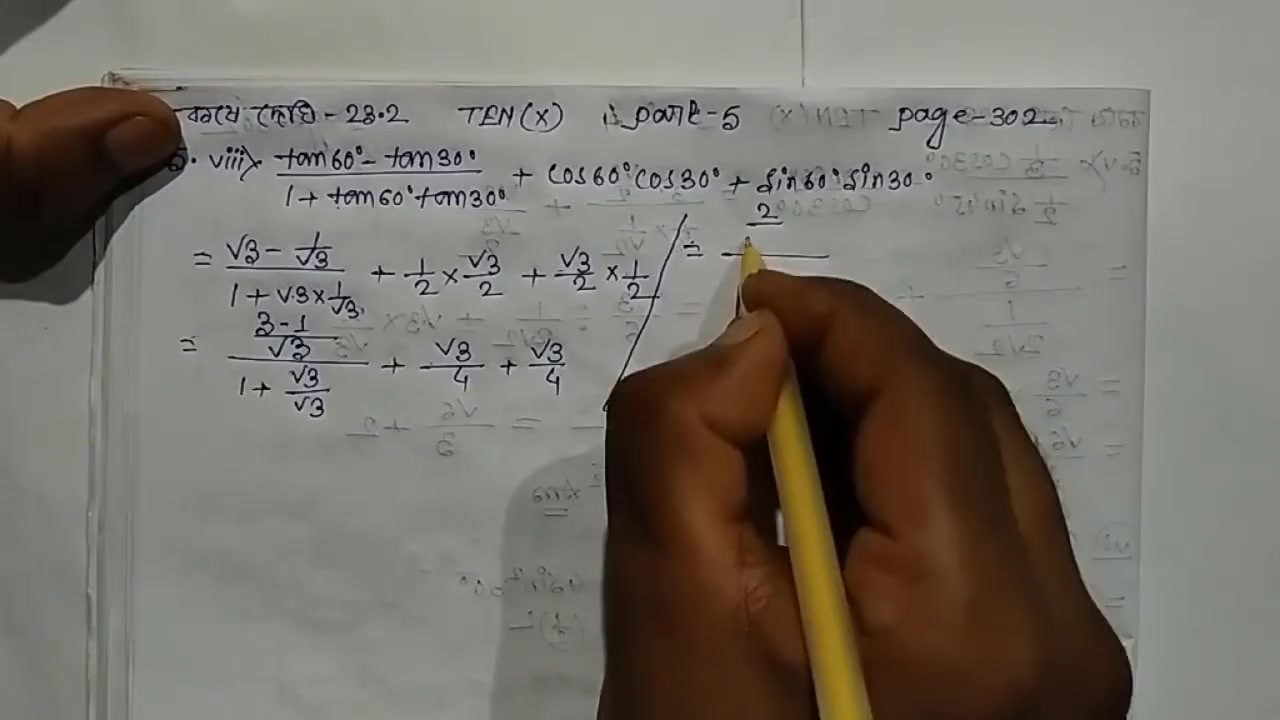 কষে দেখি - 23.2 TEN (X) part-5 page-302
viii> (tan60° - tan30°)/(1 + tan60° tan30°) + cos60° cos30° + sin60° sin30°
= (√3 - 1/√3)/(1 + √3 × 1/√3) + 1/2 × √3/2 + √3/2 × 1/2
= ((3-1)/√3)/(1 + √3/√3) + √3/4 + √3/4
= 2